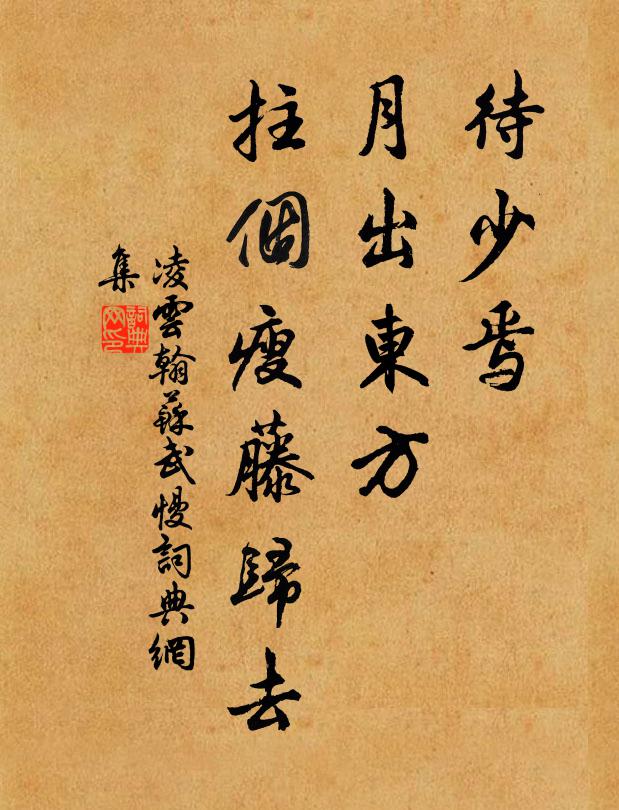 待少焉
月出東方
拄個瘦藤歸去
凌雲翰蘇武慢詞典網
集
詞典
网印